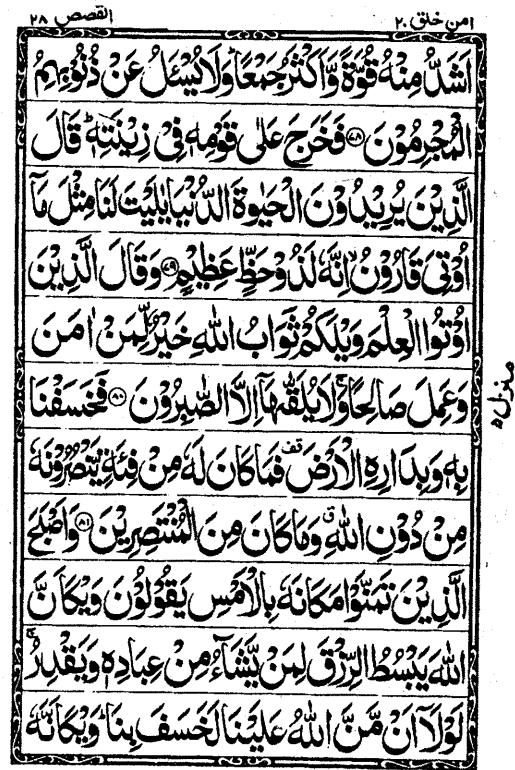 امن خلق ٢٠ القصص ٢٨
اَشَدُّ مِنْهُ قُوَّةً وَّاَكْثَرُ جَمْعًا ؕ وَلَا يُسْـَٔلُ عَنْ ذُنُوْبِهِمُ
الْمُجْرِمُوْنَ ﴿٧٨﴾ فَخَرَجَ عَلٰى قَوْمِهٖ فِىْ زِيْنَتِهٖ ؕ قَالَ
الَّذِيْنَ يُرِيْدُوْنَ الْحَيٰوةَ الدُّنْيَا يٰلَيْتَ لَنَا مِثْلَ مَاۤ
اُوْتِىَ قَارُوْنُ ۙ اِنَّهٗ لَذُوْ حَظٍّ عَظِيْمٍ ﴿٧٩﴾ وَقَالَ الَّذِيْنَ
اُوْتُوا الْعِلْمَ وَيْلَكُمْ ثَوَابُ اللّٰهِ خَيْرٌ لِّمَنْ اٰمَنَ
وَعَمِلَ صَالِحًا ۚ وَلَا يُلَقّٰىهَاۤ اِلَّا الصّٰبِرُوْنَ ﴿٨٠﴾ فَخَسَفْنَا
بِهٖ وَبِدَارِهِ الْاَرْضَ ۫ فَمَا كَانَ لَهٗ مِنْ فِئَةٍ يَّنْصُرُوْنَهٗ
مِنْ دُوْنِ اللّٰهِ ۗ وَمَا كَانَ مِنَ الْمُنْتَصِرِيْنَ ﴿٨١﴾ وَاَصْبَحَ
الَّذِيْنَ تَمَنَّوْا مَكَانَهٗ بِالْاَمْسِ يَقُوْلُوْنَ وَيْكَاَنَّ
اللّٰهَ يَبْسُطُ الرِّزْقَ لِمَنْ يَّشَآءُ مِنْ عِبَادِهٖ وَيَقْدِرُ ۚ
لَوْلَاۤ اَنْ مَّنَّ اللّٰهُ عَلَيْنَا لَخَسَفَ بِنَا ؕ وَيْكَاَنَّهٗ
منزل ٥